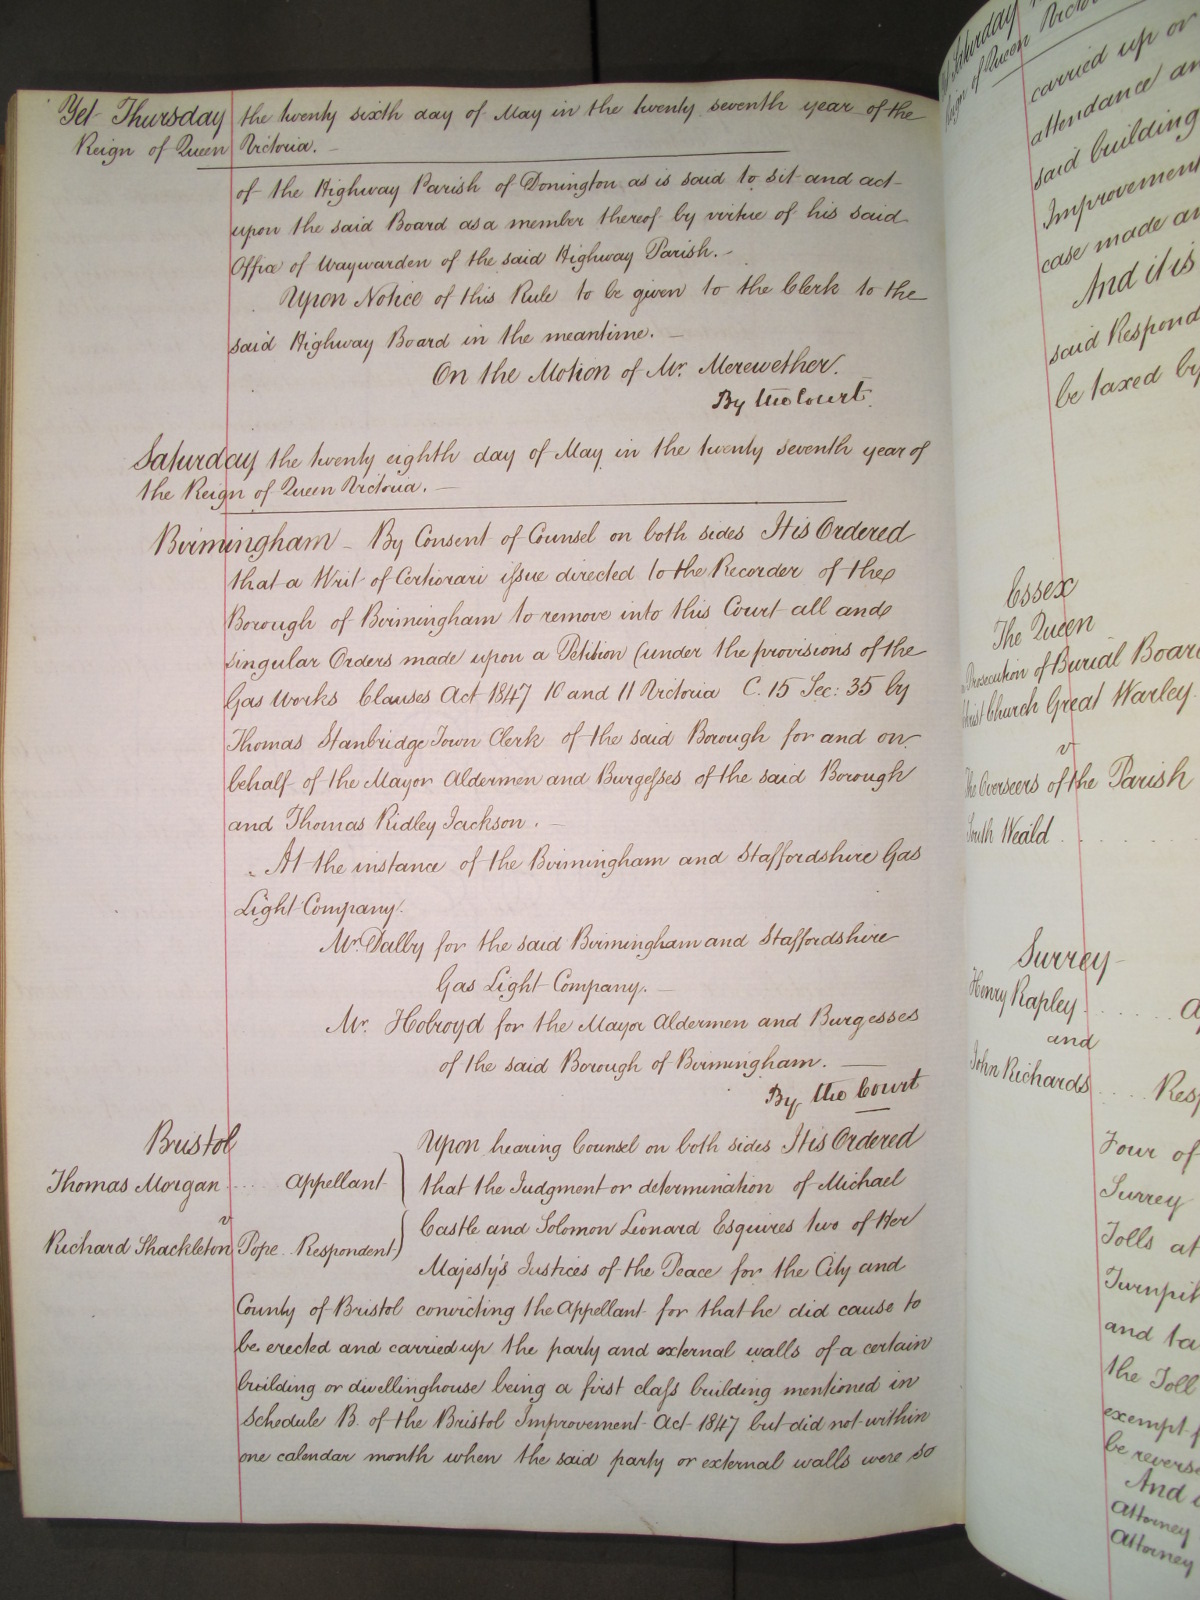 Yet Thursday the twenty sixth day of May in the twenty seventh year of the
Reign of Queen Victoria. –
of the Highway Parish of Donington as is said to sit and act
upon the said Board as a member thereof by virtue of his said
Office of Waywarden of the said Highway Parish. –
Upon Notice of this Rule to be given to the Clerk to the
said Highway Board in the meantime. –
On the Motion of Mr. Merewether.
By the Court.
Saturday the twenty eighth day of May in the twenty seventh year of
the Reign of Queen Victoria. –
Birmingham – By Consent of Counsel on both sides It is Ordered
that a Writ of Certiorari issue directed to the Recorder of the
Borough of Birmingham to remove into this Court all and
singular Orders made upon a Petition (under the provisions of the
Gas Works Clauses Act 1847 10 and 11 Victoria C. 15 Sec: 35 by
Thomas Stanbridge Town Clerk of the said Borough for and on
behalf of the Mayor Aldermen and Burgesses of the said Borough
and Thomas Ridley Jackson. –
At the instance of the Birmingham and Staffordshire Gas
Light Company.
Mr. for the said Birmingham and Staffordshire
Gas Light Company. –
Mr. Holroyd for the Mayor Aldermen and Burgesses
of the said Borough of Birmingham. –
By the Court
Bristol
Thomas Morgan .... Appellant
v
Richard Shackleton Pope .. Respondent
Upon hearing Counsel on both sides It is Ordered
that the Judgment or determination of Michael
Castle and Solomon Leonard Esquires two of Her
Majesty's Justices of the Peace for the City and
County of Bristol convicting the Appellant for that he did cause to
be erected and carried up the party and external walls of a certain
building or dwellinghouse being a first class building mentioned in
Schedule B. of the Bristol Improvement Act 1847 but did not within
one calendar month when the said party or external walls were so
Saturday
Reign of Queen Victoria
carried up or
attendance an
said building
Improvement
case made an
And it is
said Respond
be taxed by
Essex
The Queen
Prosecution of Burial Board
Christ Church Great Warley.
v
The Overseers of the Parish
South Weald . . . .
Surrey
Henry Rapley . . . . . .
and
John Richards . . . . Resp
Four of
Surrey
Tolls at
Turnpik
and ta
the Toll
exempt f
be reverse
And i
Attorney
Attorney